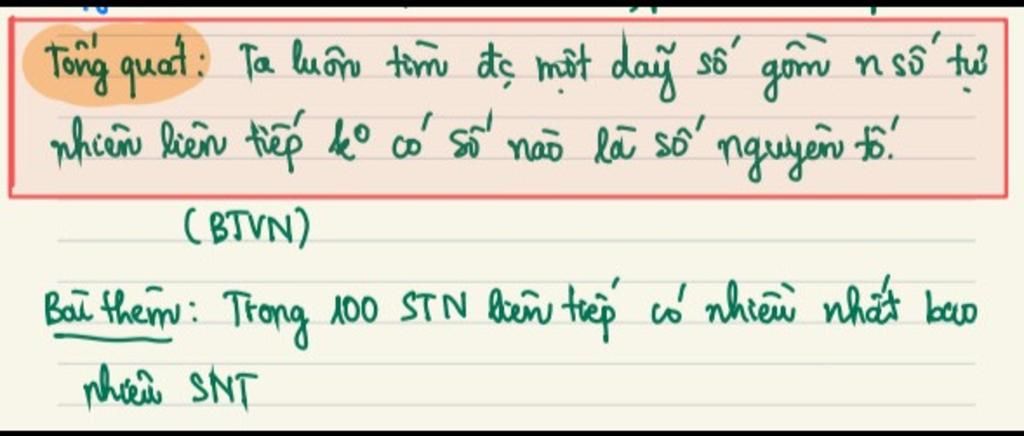 Tổng quát: Ta luôn tìm đc một dãy số gồm n số tự
nhiên liên tiếp ko có số nào là số nguyên tố.
(BTVN)
Bài thêm: Trong 100 STN liên tiếp có nhiều nhất bao
nhiêu SNT